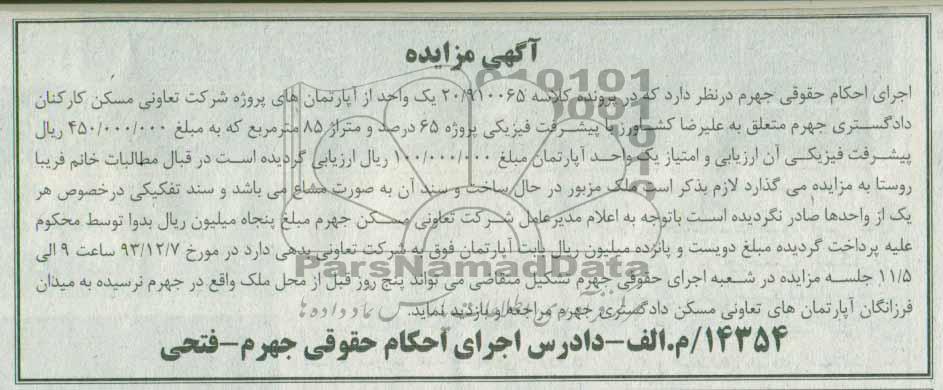 آگهی مزایده
اجرای احکام حقوقی جهرم درنظر دارد که در پرونده کلاسه ۲۰/۹۱۰۰۶۵ یک واحد از آپارتمان های پروژه شرکت تعاونی مسکن کارکنان
دادگستری جهرم متعلق به علیرضا کشاورز با پیشرفت فیزیکی پروژه ۶۵ درصد و متراژ ۸۵ مترمربع که به مبلغ ۴۵۰/۰۰۰/۰۰۰ ریال
پیشرفت فیزیکی آن ارزیابی و امتیاز یک واحد آپارتمان مبلغ ۱۰۰/۰۰۰/۰۰۰ ریال ارزیابی گردیده است در قبال مطالبات خانم فریبا
روستا به مزایده می گذارد لازم بذکر است ملک مزبور در حال ساخت و سند آن به صورت مشاع می باشد و سند تفکیکی درخصوص هر
یک از واحدها صادر نگردیده است باتوجه به اعلام مدیرعامل شرکت تعاونی مسکن جهرم مبلغ پنجاه میلیون ریال بدوا توسط محکوم
علیه پرداخت گردیده مبلغ دویست و پانزده میلیون ریال بابت آپارتمان فوق به شرکت تعاونی بدهی دارد در مورخ ۹۳/۱۲/۷ ساعت ۹ الی
۱۱/۵ جلسه مزایده در شعبه اجرای حقوقی جهرم تشکیل متقاضی می تواند پنج روز قبل از محل ملک واقع در جهرم نرسیده به میدان
فرزانگان آپارتمان های تعاونی مسکن دادگستری جهرم مراجعه و بازدید نماید.
۱۴۳۵۴/م.الف-دادرس اجرای احکام حقوقی جهرم-فتحی
ParsNamadData